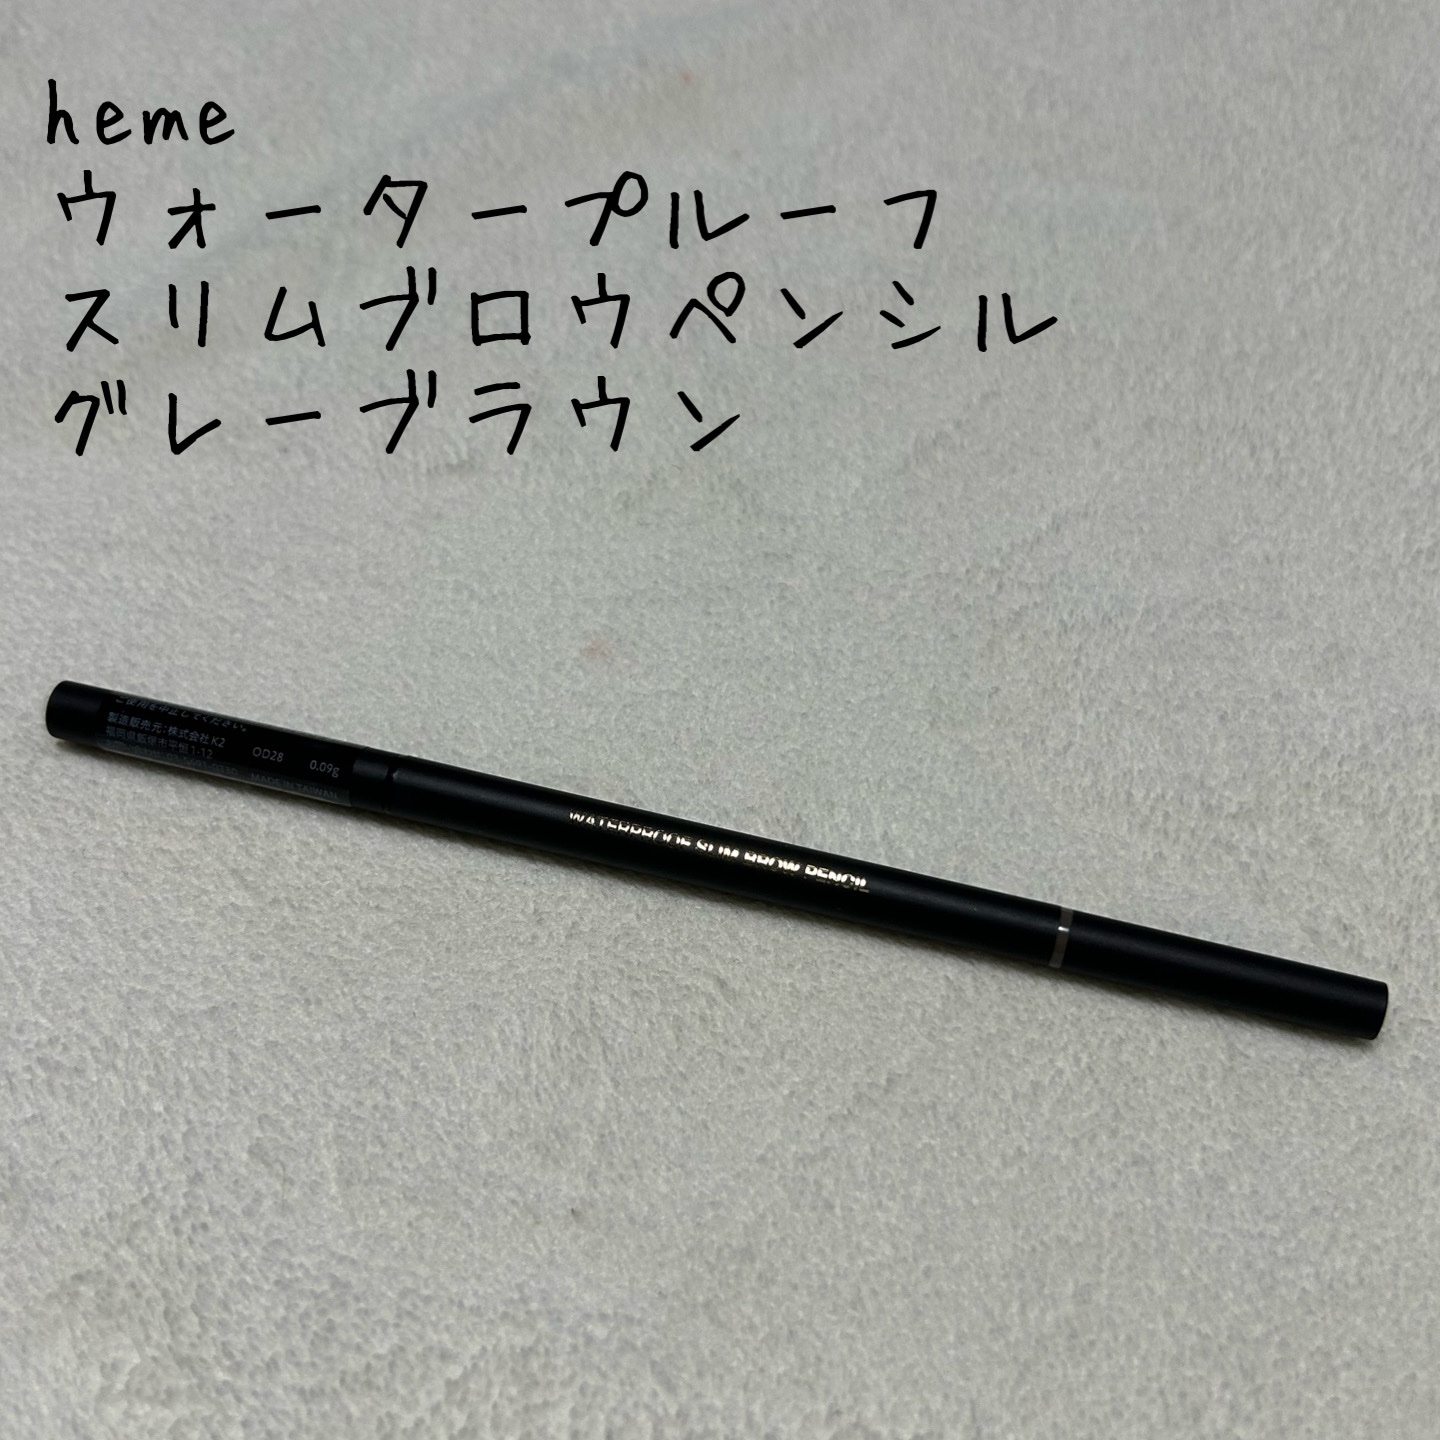 heme
ウォータープルーフ
スリムブロウペンシル
グレーブラウン
ご使用を中止してください。
製造販売元:株式会社K2
福岡県飯塚市平恒1-12
OD28 0.09g
MADE IN TAIWAN
WATERPROOF SLIM BROW PENCIL